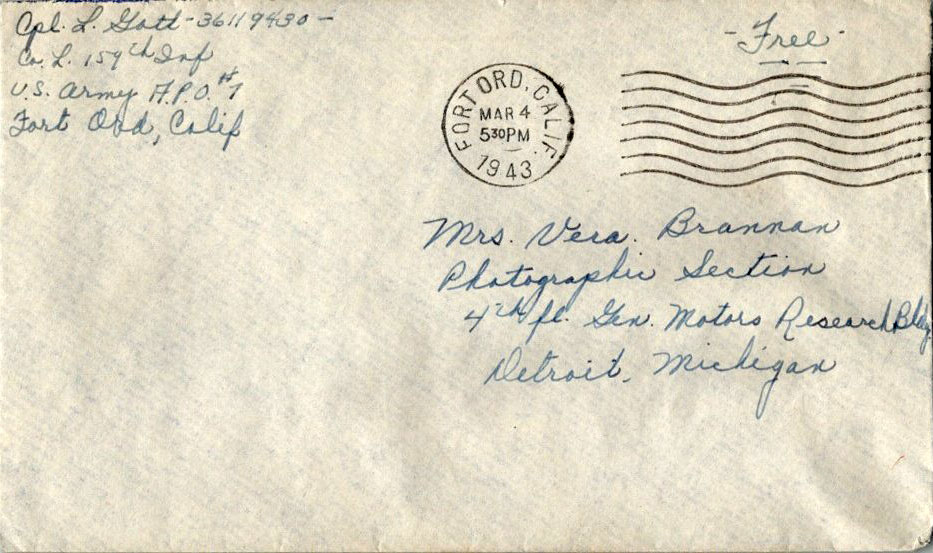 Cpl. L. Gatt - 36119430 -
Co. L. 159th Inf
U.S. Army A.P.O. #7
Fort Ord, Calif
- Free -
FORT ORD, CALIF.
MAR 4
530PM
1943
Mrs. Vera. Brannan
Photographic Section
4th fl. Gen. Motors Research Bldg.
Detroit, Michigan